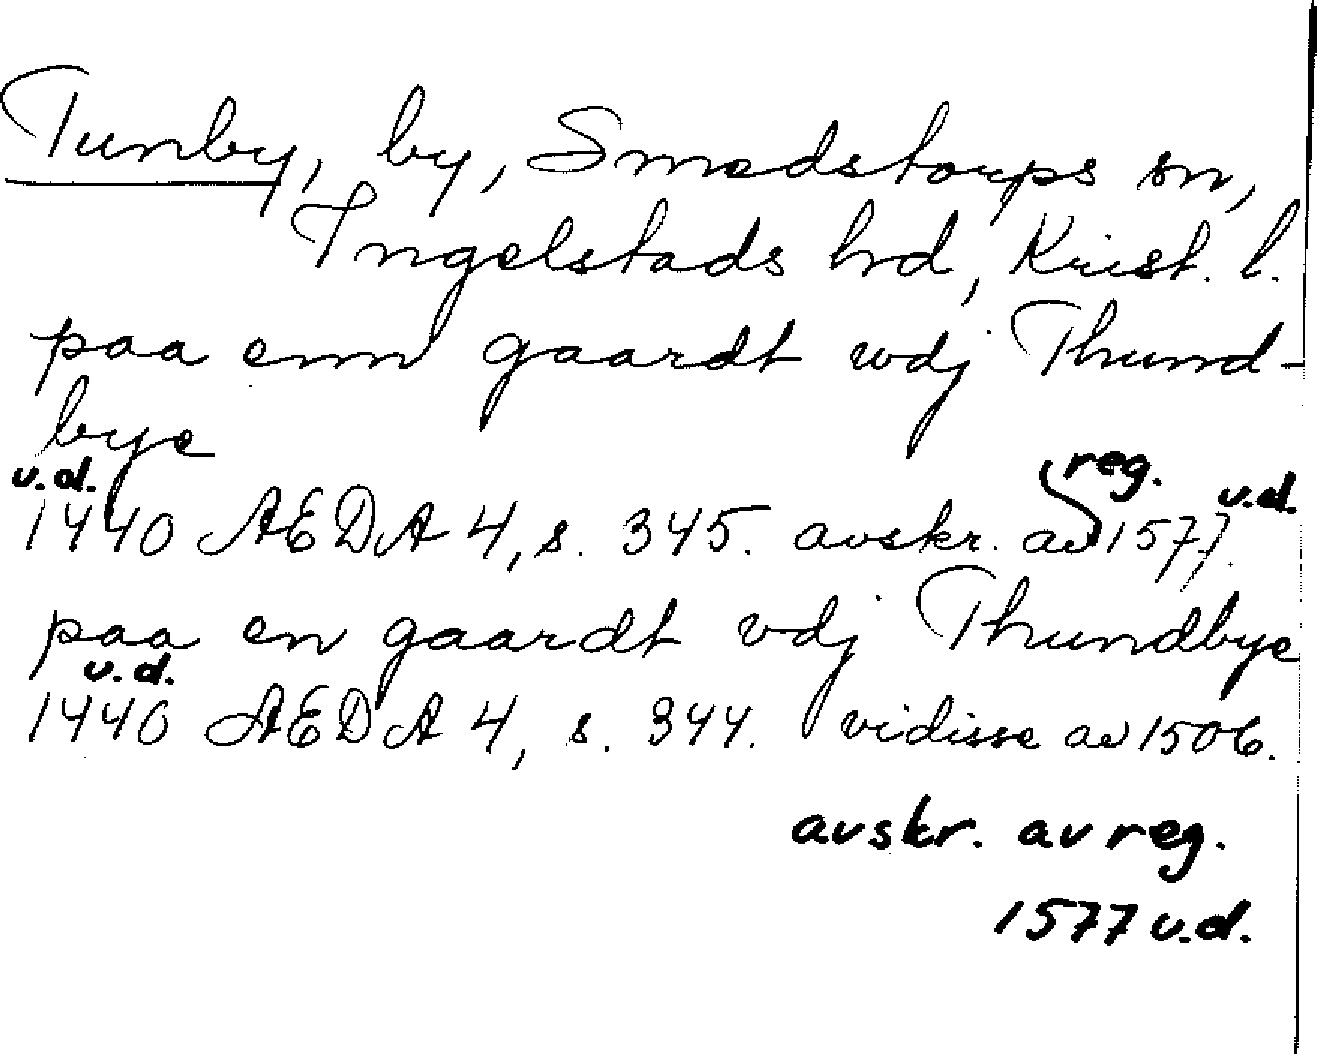 Tunby, by, Smedstorps sn,
Ingelstads hrd, Krist. l.
paa enn gaardt wdj Thund-
bye
u.d.
1440 AEDA 4, s. 345. avskr. av reg. 1577 u.d.
paa en gaardt vdj Thundbye
u.d.
1440 AEDA 4, s. 344. vidisse av 1506.
avskr. av reg.
1577 u.d.